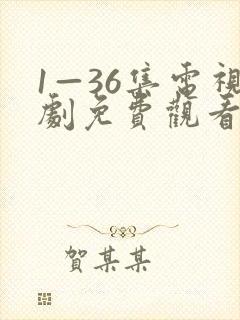 1—36集電視
劇免費觀看
賀某某